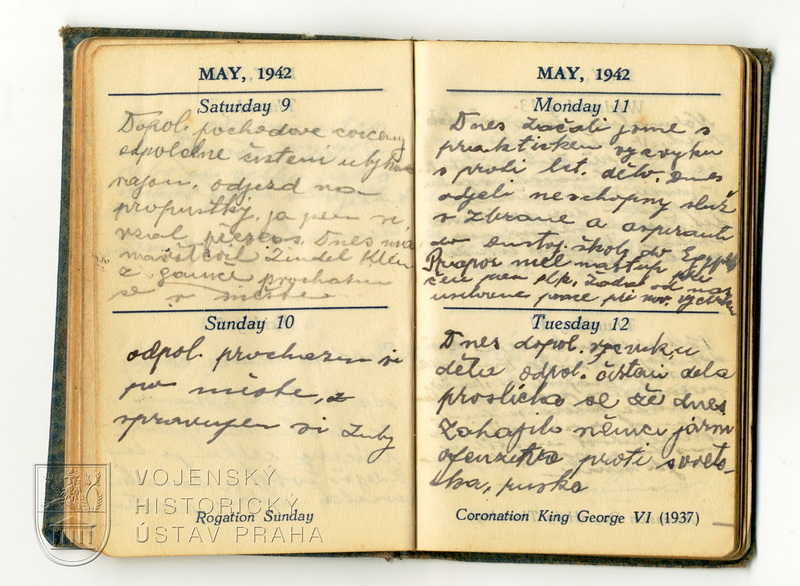 MAY, 1942
Saturday 9
Dopol. pochodove cviceny
odpoledne čisteni ubyk
rajon. odjezd na
propustky. ja jsem si
vzal přesčas. Dnes mn
navštivil Zindel Klein
z prochazim
se v měste
Sunday 10
odpol. prochazim se
po městě, a
spravujem si zuby
Rogation Sunday
MAY, 1942
Monday 11
Dnes začali jsme s
praktickem vycviku
s proti let. dělo. Dnes
odjeli neschopny služ
v zbrane a aspiranti
do dustoj. školy do Egypt
Prapor měl nastup při
čten plk. žada od nas
usilovne prace při nov. vycviku
Tuesday 12
Dnes dopol. vycviku
děla odpol. čisteni dela
proslicho se že dnes
zahajilo němci jarni
ofenzivo proti sověts-
ska, rusko
Coronation King George VI (1937)
VOJENSKÝ
HISTORICKÝ
ÚSTAV PRAHA